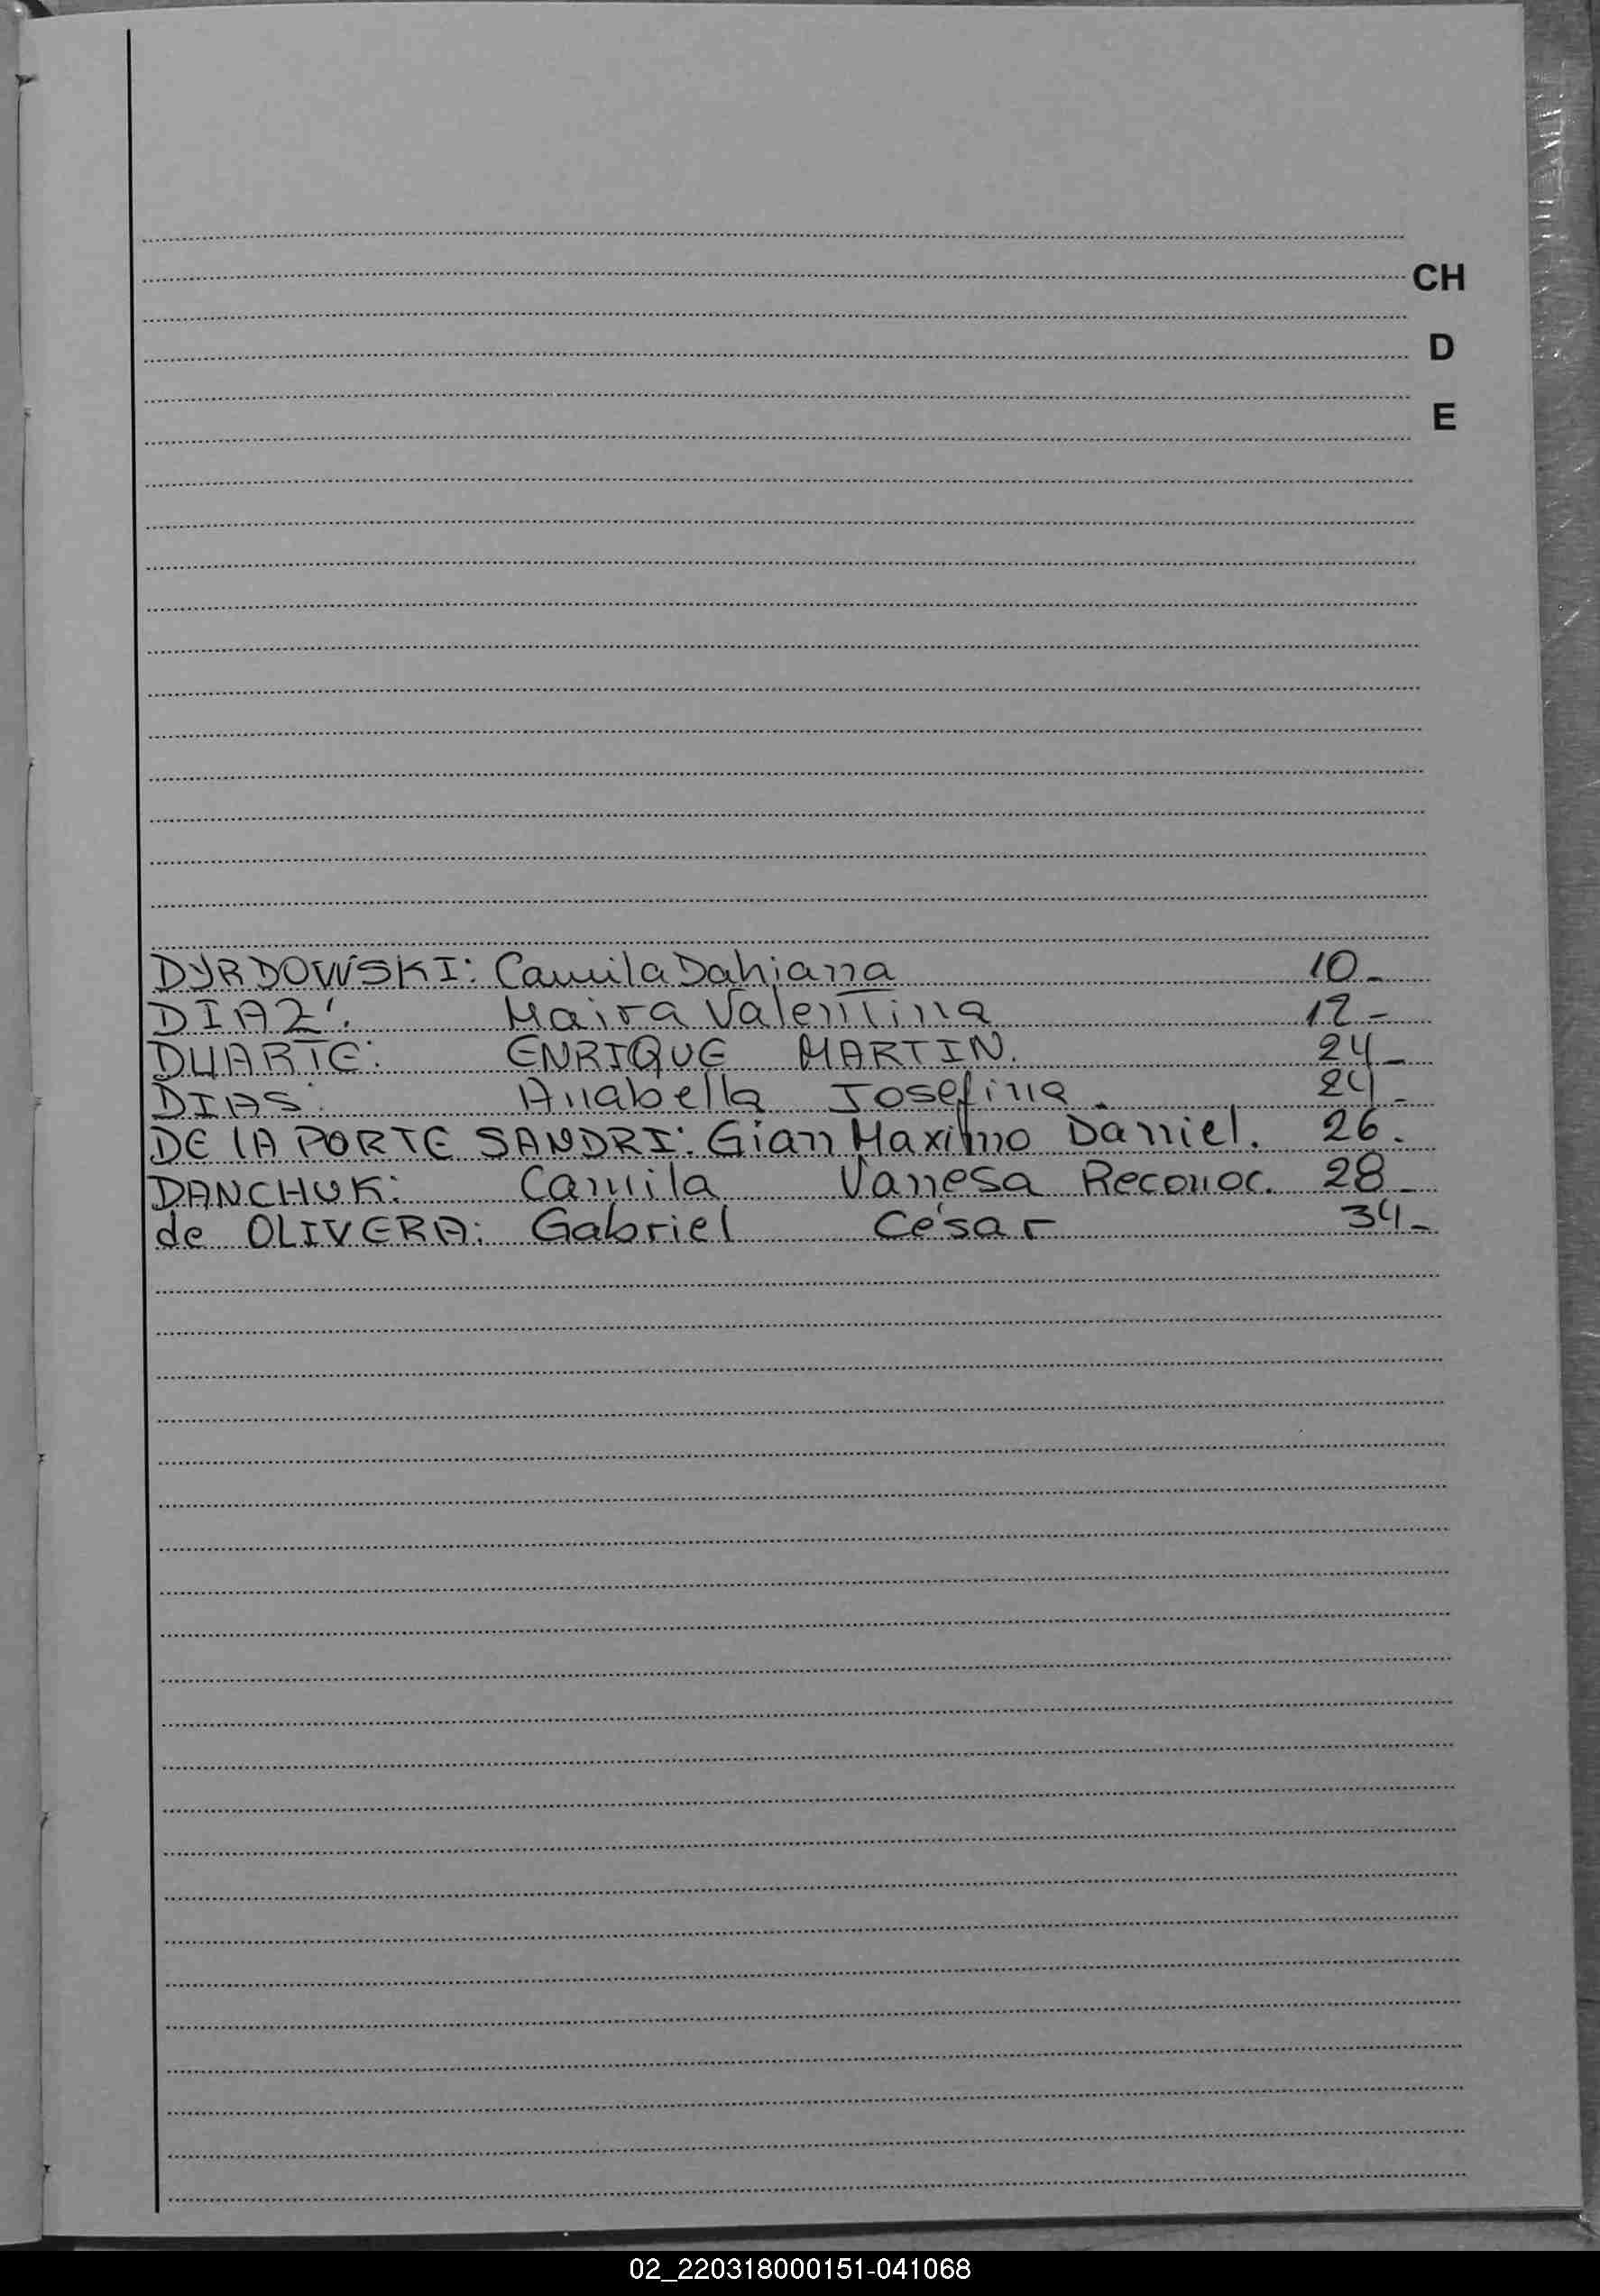 CH
D
E
DYRDOWSKI: Camila Dahiana 10-
DIAZ: Maira Valentina 12-
DUARTE: ENRIQUE MARTIN. 24-
DIAS: Anabella Josefina. 24-
DE LA PORTE SANDRI: Gian Maximo Daniel. 26.
DANCHUK: Camila Vanesa Reconoc. 28-
de OLIVERA: Gabriel César 34-
02_220318000151-041068